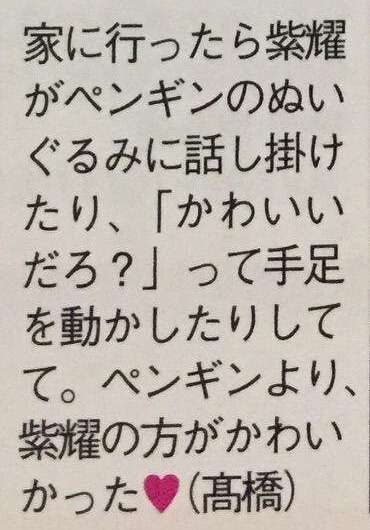 家に行ったら紫耀
がペンギンのぬい
ぐるみに話し掛け
たり、「かわいい
だろ？」って手足
を動かしたりして
て。ペンギンより、
紫耀の方がかわい
かった♥(髙橋)